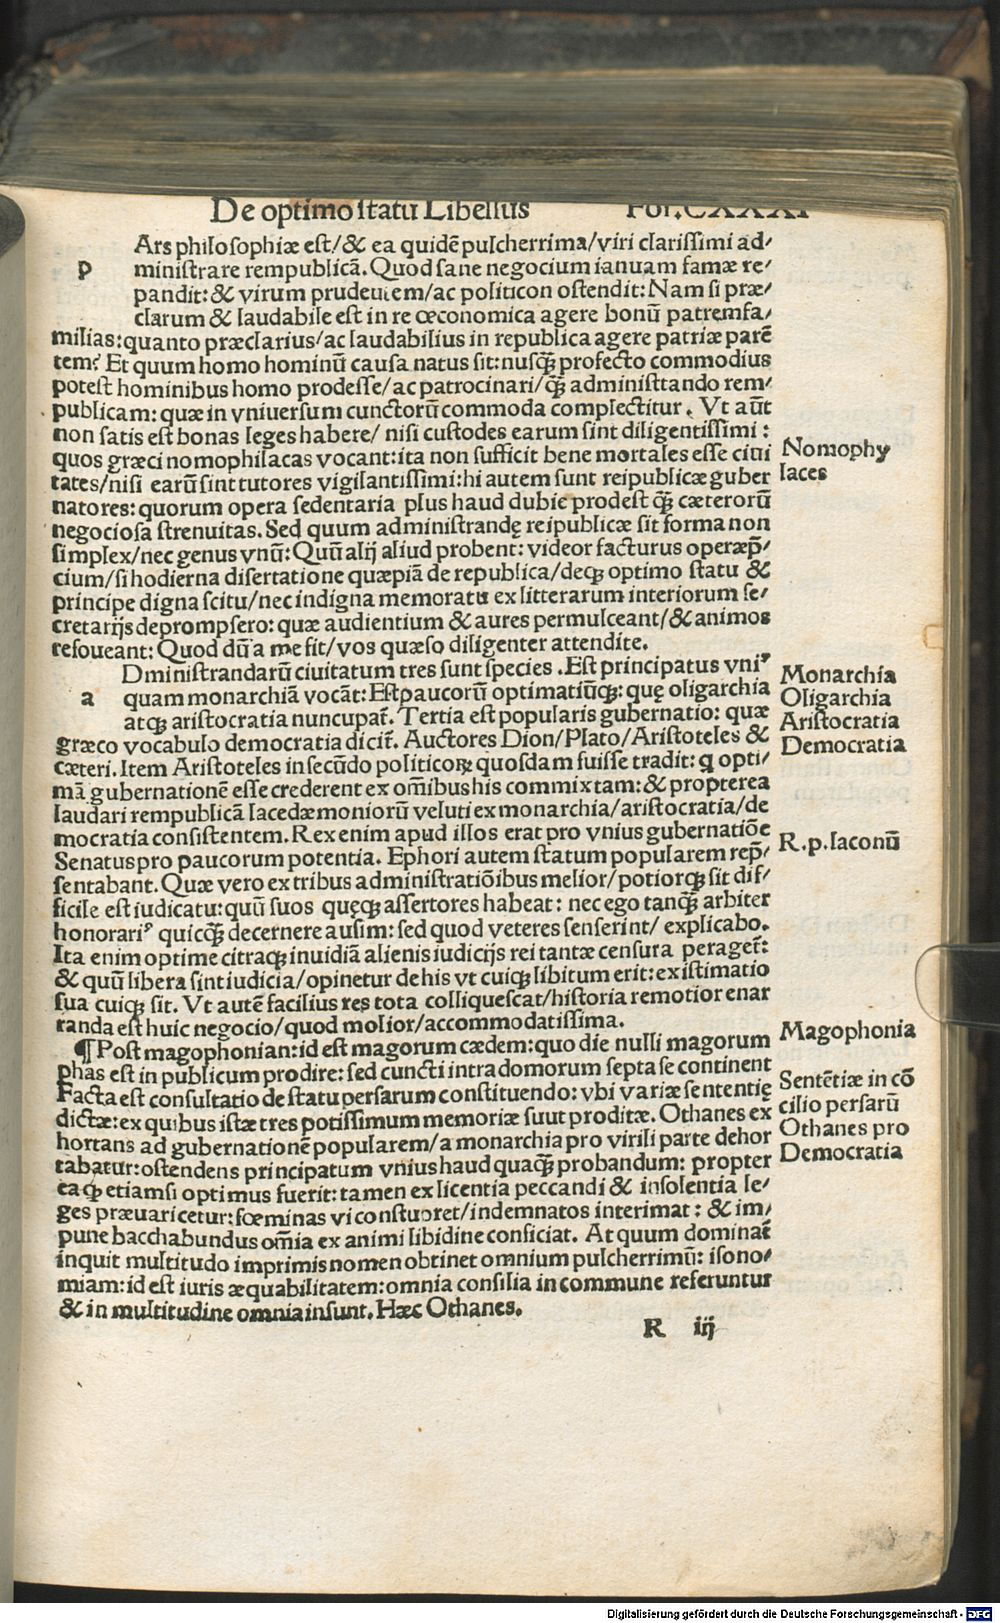 De optimo statu Libellus Fol. CXXXI
Ars philosophiæ est/& ea quidē pulcherrima/viri clarissimi ad⸗
p ministrare rempublicā. Quod sane negocium ianuam famæ re⸗
pandit: & virum prudentem/ac politicon ostendit: Nam si præ⸗
clarum & laudabile est in re œconomica agere bonū patremfa⸗
milias: quanto præclarius/ac laudabilius in republica agere patriæ parē
tem? Et quum homo hominū causa natus sit: nusq̄ profecto commodius
potest hominibus homo prodesse/ac patrocinari/q̄ administtando rem⸗
publicam: quæ in vniuersum cunctorū commoda complectitur. Vt aūt
non satis est bonas leges habere/ nisi custodes earum sint diligentissimi:
quos græci nomophilacas vocant: ita non sufficit bene mortales esse ciui
tates/nisi earū sint tutores vigilantissimi: hi autem sunt reipublicæ guber
natores: quorum opera sedentaria plus haud dubie prodest q̄ cæterorū
negociosa strenuitas. Sed quum administrandę reipublicæ sit forma non
simplex/nec genus vnū: Quū alij aliud probent: videor facturus operæp̄⸗
cium/si hodierna disertatione quæpiā de republica/deq; optimo statu &
principe digna scitu/nec indigna memoratu ex litterarum interiorum se⸗
cretarijs deprompsero: quæ audientium & aures permulceant/& animos
refoueant: Quod dū a me fit/vos quæso diligenter attendite.
Dministrandarū ciuitatum tres sunt species. Est principatus vniꝰ
a quam monarchiā vocāt: Est paucorū optimatiūq;: quę oligarchia
atq; aristocratia nuncupat̄. Tertia est popularis gubernatio: quæ
græco vocabulo democratia dicit̄. Auctores Dion/Plato/Aristoteles &
cæteri. Item Aristoteles in secūdo politicoꝝ quosdam fuisse tradit: q opti⸗
mā gubernationē esse crederent ex om̄ibus his commixtam: & propterea
laudari rempublicā lacedæmoniorū veluti ex monarchia/aristocratia/de
mocratia consistentem. Rex enim apud illos erat pro vnius gubernatiōe
Senatus pro paucorum potentia. Ephori autem statum popularem rep̄⸗
sentabant. Quæ vero ex tribus administratiōibus melior/potiorq; sit dif⸗
ficile est iudicatu: quū suos quęq; assertores habeat: nec ego tanq̄ arbiter
honorariꝰ quicq̄ decernere ausim: sed quod veteres senserint/ explicabo.
Ita enim optime citraq; inuidiā alienis iudicijs rei tantæ censura peraget̄:
& quū libera sint iudicia/opinetur de his vt cuiq; libitum erit: existimatio
sua cuiq; sit. Vt autē facilius res tota colliquescat/historia remotior enar
randa est huic negocio/quod molior/accommodatissima.
¶Post magophonian: id est magorum cædem: quo die nulli magorum
phas est in publicum prodire: sed cuncti intra domorum septa se continent
Facta est consultatio de statu persarum constituendo: vbi variæ sententię
dictæ: ex quibus istæ tres potissimum memoriæ suut proditæ. Othanes ex
hortans ad gubernationē popularem/a monarchia pro virili parte dehor
tabatur: ostendens principatum vnius haud quaq̄ probandum: propter
ea q etiamsi optimus fuerit: tamen ex licentia peccandi & insolentia le⸗
ges præuaricetur: fœminas vi constuoret/indemnatos interimat: & im⸗
pune bacchabundus om̄ia ex animi libidine conficiat. At quum dominat̄
inquit multitudo imprimis nomen obtinet omnium pulcherrimū: isono⸗
miam: id est iuris æquabilitatem: omnia consilia in commune referuntur
& in multitudine omnia insunt. Hæc Othanes.
R iij
Nomophy
laces
Monarchia
Oligarchia
Aristocratia
Democratia
R.p. laconū
Magophonia
Sentētiæ in cō
cilio persarū
Othanes pro
Democratia
Digitalisierung gefördert durch die Deutsche Forschungsgemeinschaft - DFG